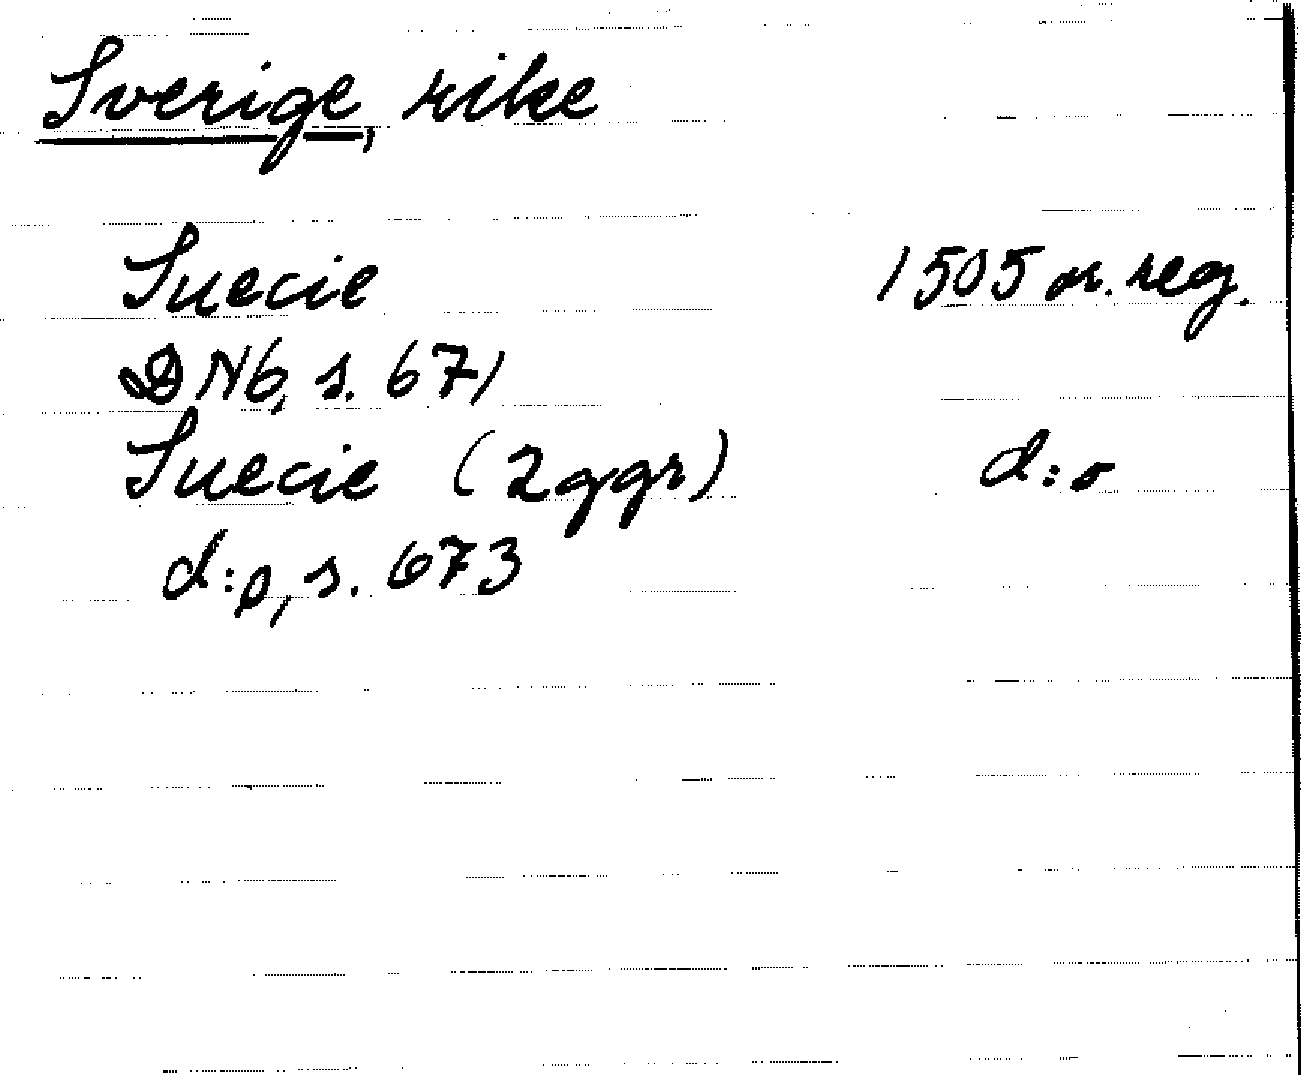 Sverige, rike
Suecie 1505 or. reg.
DN6, s. 671
Suecie (2 ggr) d:o
d:o, s. 673